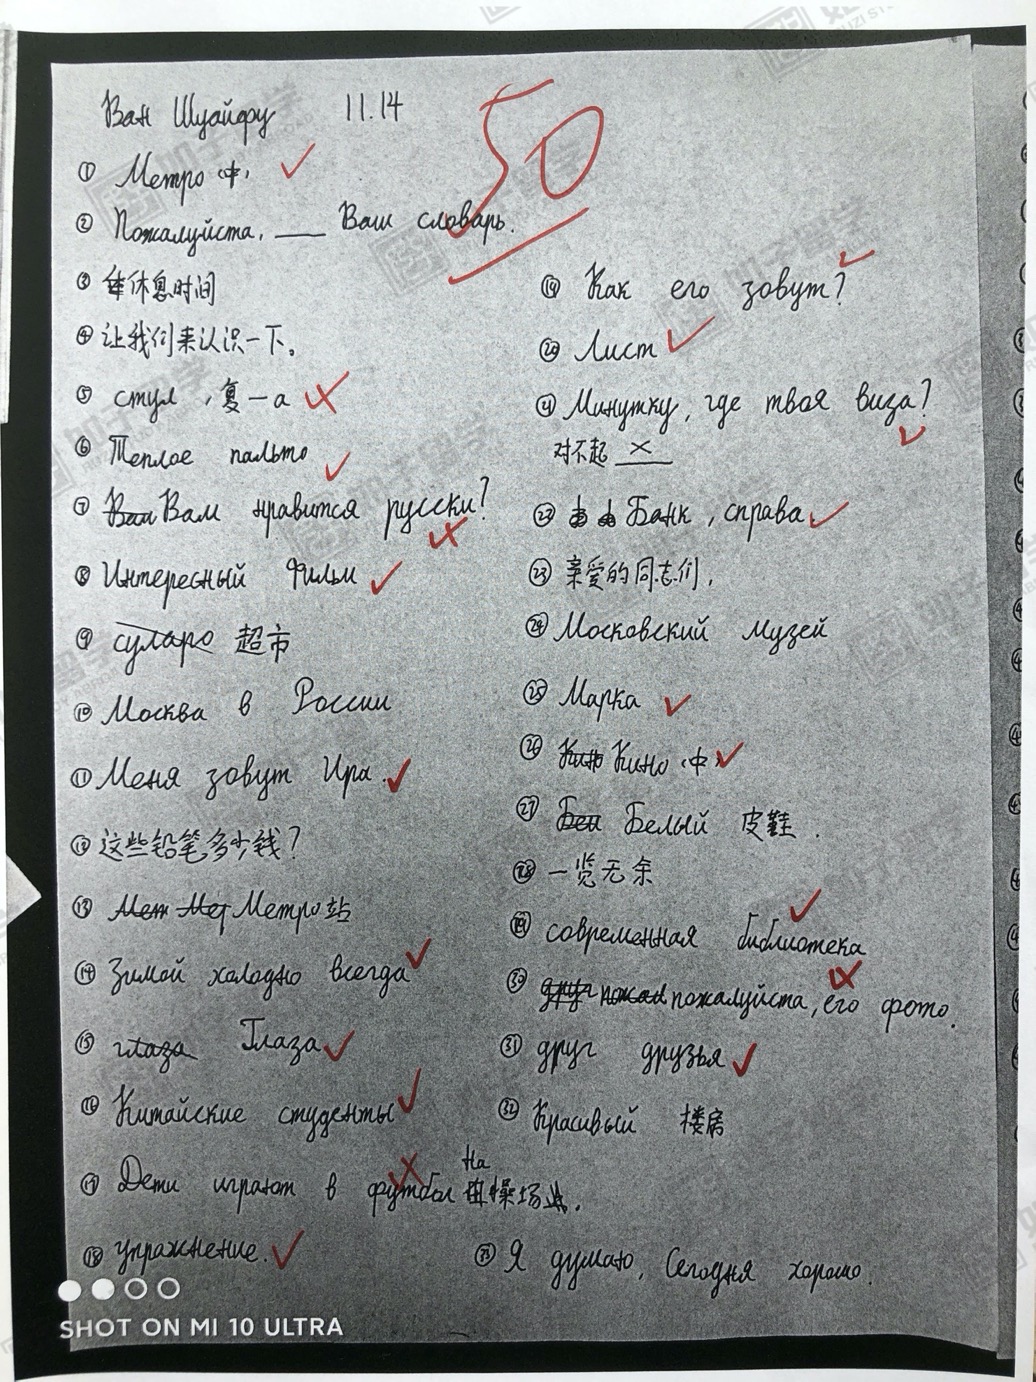 Ван Шуайфу 11.14
50
① Метро (中)
② Пожалуйста, ___ Ваш словарь.
③ 休息时间
④ 让我们来认识一下。
⑤ стул , 复一а
⑥ Теплое пальто
⑦ Вам нравится русски?
⑧ Интересный Фильм
⑨ суларо 超市
⑩ Москва в России
⑪ Меня зовут Ира.
⑫ 这些铅笔多少钱?
⑬ Мет Мет Метро站
⑭ Зимой холодно всегда
⑮ глаза Глаза
⑯ Китайские студенты
⑰ Дети играют в футбол На 操场.
⑱ упражнение.
⑲ Как его зовут?
⑳ Лист
㉑ Минутку, где твоя виза?
对不起 ___
㉒ Банк , справа
㉓ 亲爱的同志们,
㉔ Московский Музей
㉕ Марка
㉖ Кино Кино (中)
㉗ Бел Белый 皮鞋 .
㉘ 一览无余
㉙ современная библиотека
㉚ друг пожал пожалуйста, его фото.
㉛ друг друзья
㉜ Красивый 楼房
㉝ Я думаю, Сегодня хорошо.
SHOT ON MI 10 ULTRA